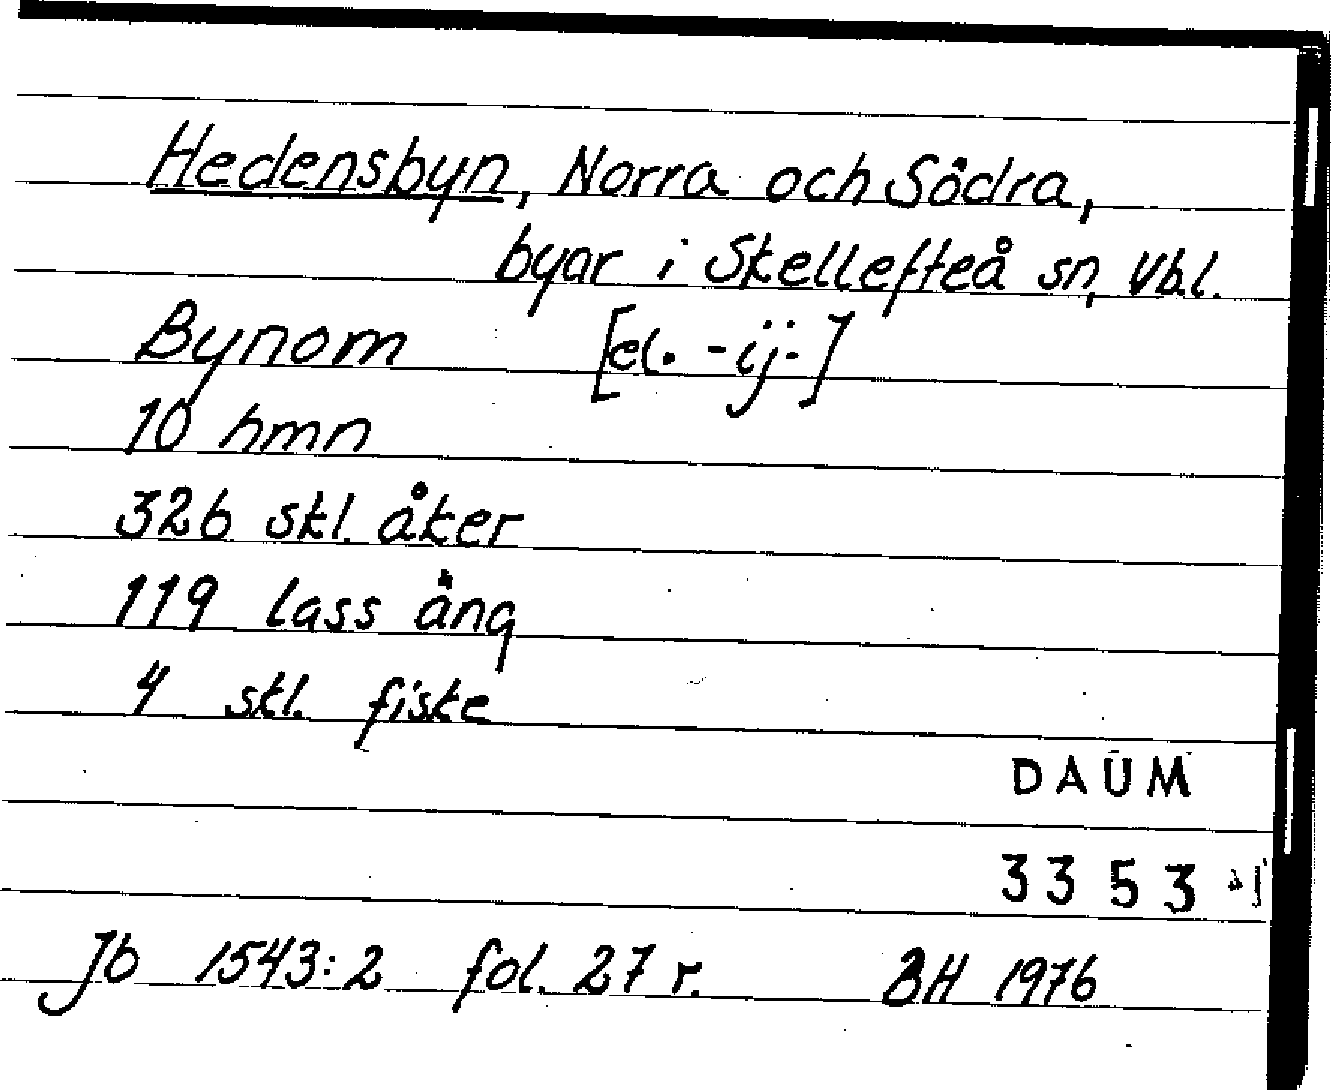 Hedensbyn, Norra och Södra,
byar i Skellefteå sn, Vbl.
Bynom [el. -ij-]
10 hmn
326 skl. åker
119 lass äng
4 skl. fiske
DAUM
3353
Jb 1543:2 fol. 27 r. BH 1976